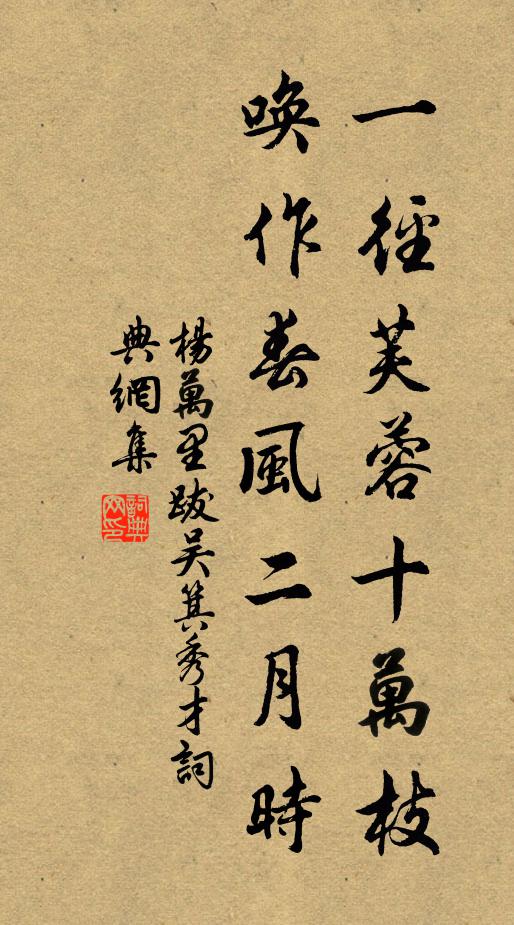 一徑芙蓉十萬枝
喚作春風二月時
楊萬里跋吳箕秀才詞
典網集
詞典網印